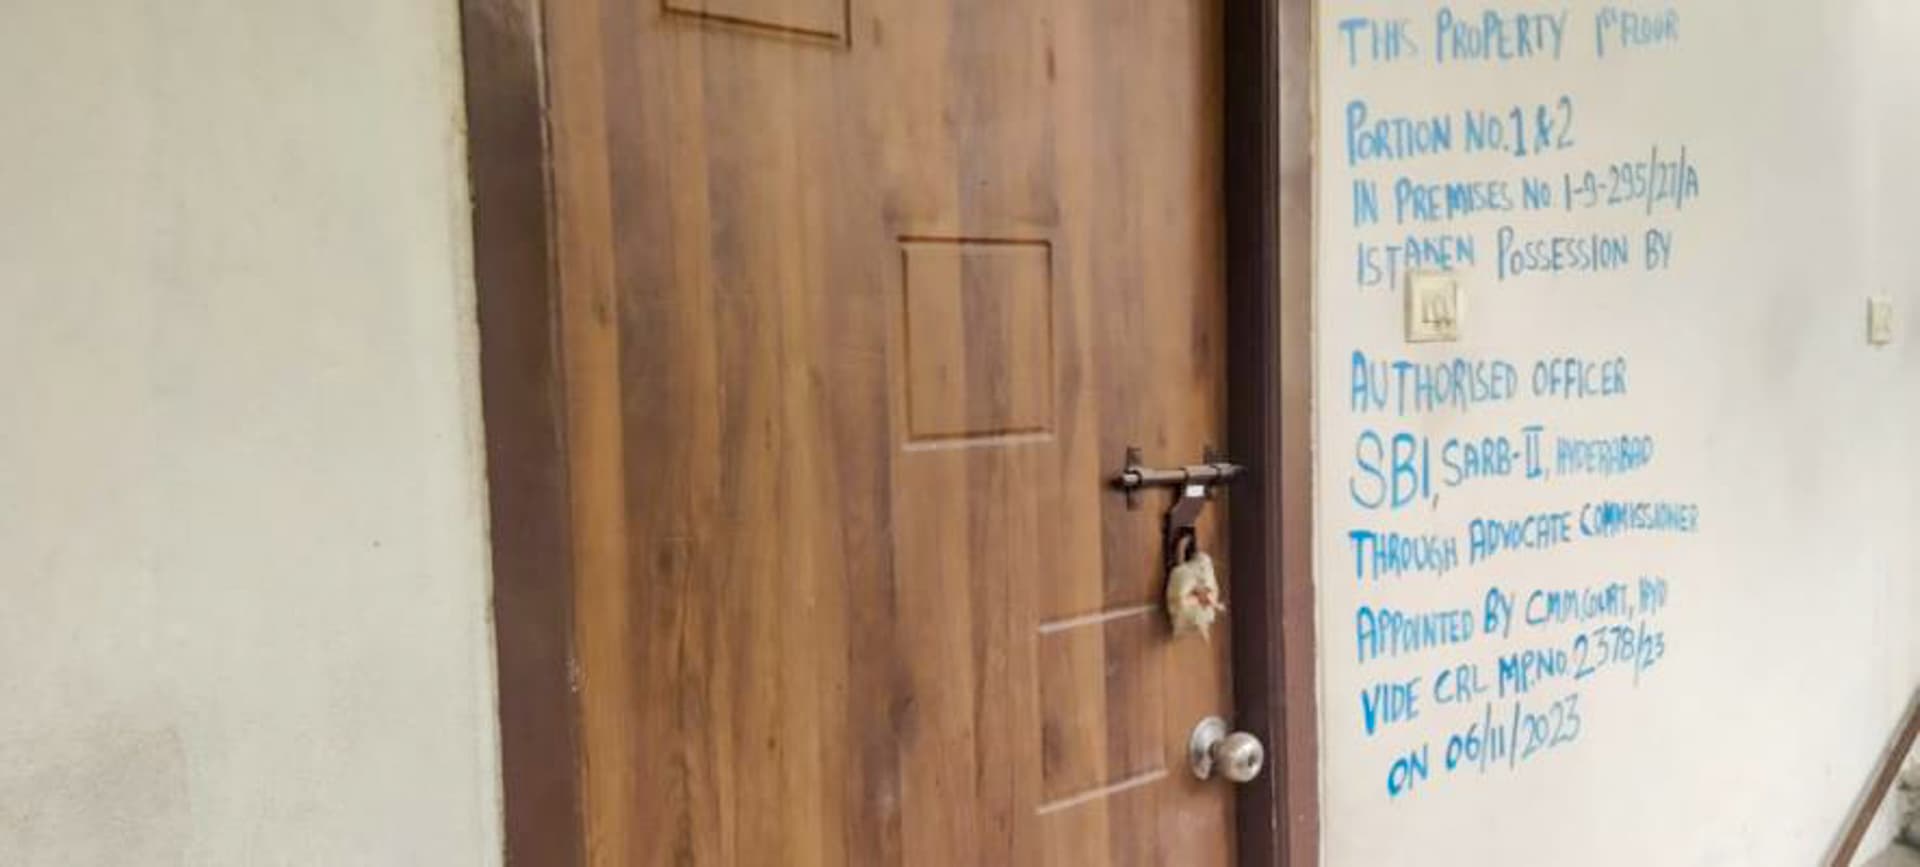 THIS PROPERTY 1ST FLOOR
PORTION NO. 1 & 2
IN PREMISES NO. 1-9-295/27/A
IS TAKEN POSSESSION BY
AUTHORISED OFFICER
SBI, SARB-II, HYDERABAD
THROUGH ADVOCATE COMMISSIONER
APPOINTED BY CMM COURT, HYD
VIDE CRL MP.NO. 2378/23
ON 06/11/2023